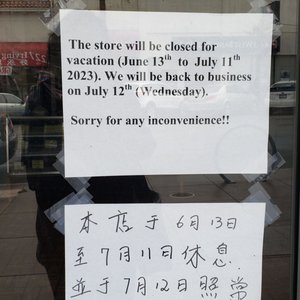 The store will be closed for
vacation (June 13th to July 11th
2023). We will be back to business
on July 12th (Wednesday).
Sorry for any inconvenience!!
本店于 6月13日
至 7月11日休息
並于 7月12日照常